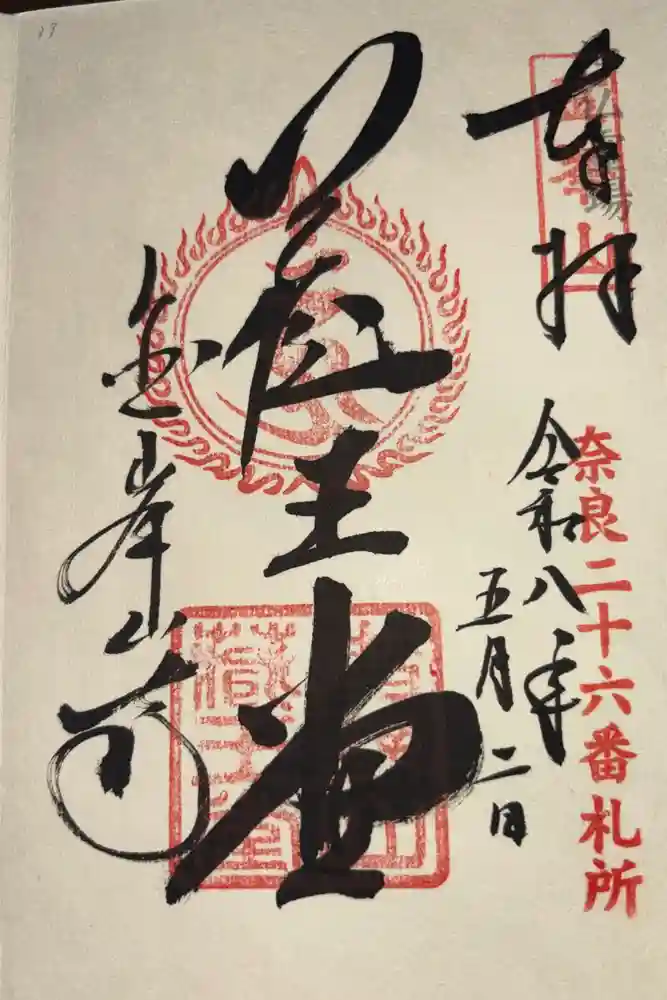 奉拝
奈良二十六番札所
令和八年
五月二日
蔵王堂
金峯山寺